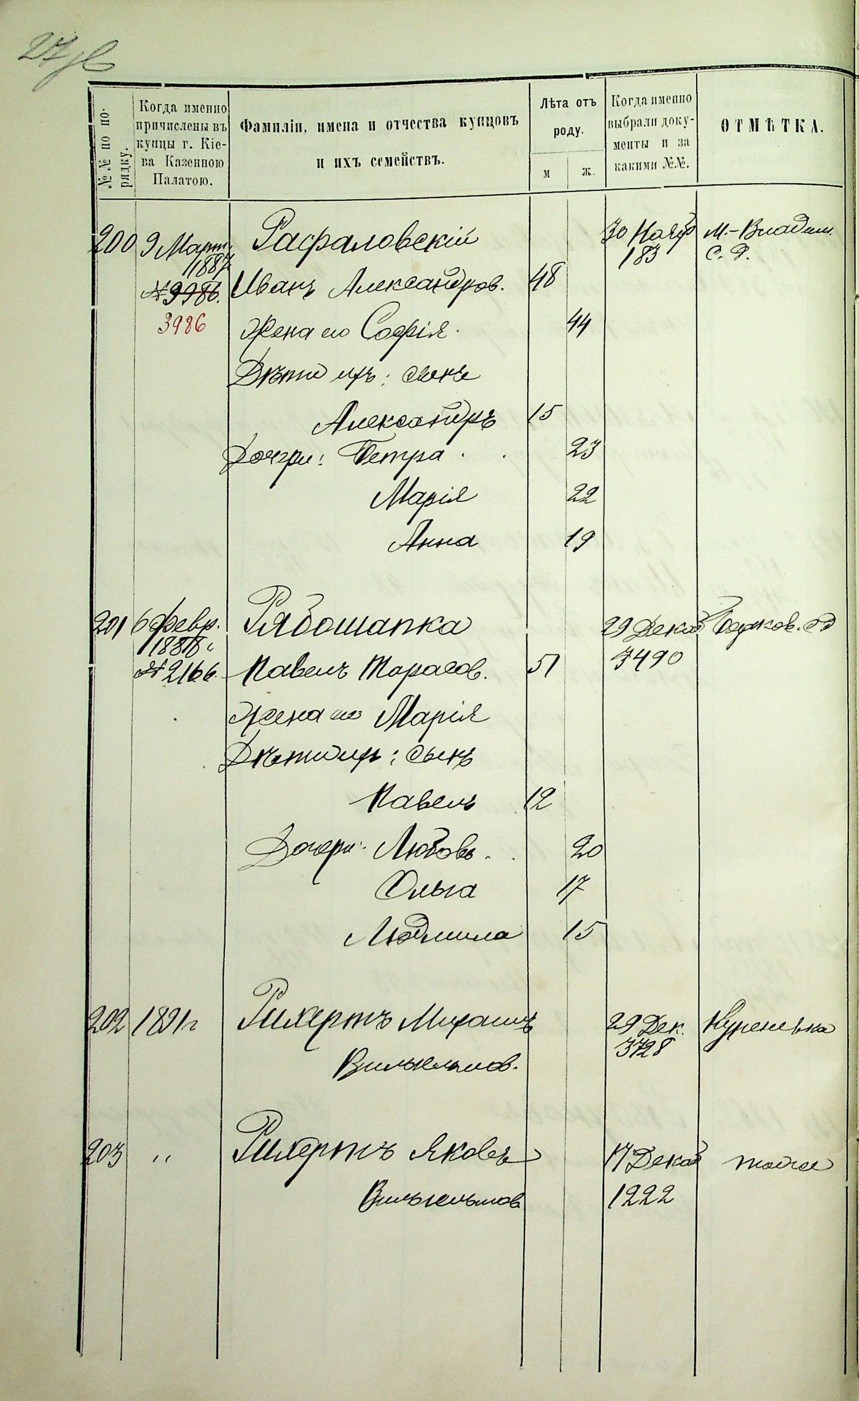 №№ по порядку.
Когда именно
причислены въ
купцы г. Кіе-
ва Казенною
Палатою.
Фамиліи, имена и отчества купцовъ
и ихъ семействъ.
Лѣта отъ
роду.
м
ж.
Когда именно
выбрали доку-
менты и за
какими №№.
ОТМѢТКА.
200 9 Март. Рафаловскій 30 Нояб М.-Владим.
1887 183 С. Д.
№ 3986. Иванъ Александров. 48
3986 Жена его Софія. 44
Дѣти ихъ: сынъ
Александръ 15
Дочери: Петра 23
Марія 22
Анна 19
201 6 Февр. Рябошапка 29 Декаб
1886
№ 2166 Павелъ Тарасов. 51 7490
Жена его Марія
Дѣти ихъ: сынъ
Павелъ 12
Дочери: Любовь. 20
Ольга 17
Людмила 15
202 1891 г Рихертъ Михаилъ 29 Дек. Куреневка
Вильгельмов. 3728
203 " Рихертъ Яковъ 17 Декаб тоже
Вильгельмов 1222